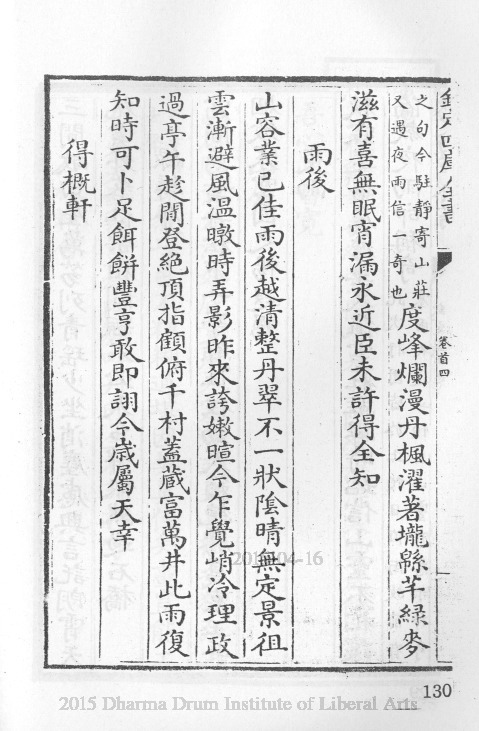 欽定四庫全書
卷首四
之句今駐靜寄山莊
又遇夜雨信一奇也
度峰爛漫丹楓濯著壠緜芊綠麥
滋有喜無眠宵漏永近臣未許得全知
雨後
山容業已佳雨後越清整丹翠不一狀陰晴無定景徂
雲漸避風溫暾時弄影昨來誇嫩暄今乍覺峭冷理政
過亭午趁閒登絕頂指顧俯千村蓋藏富萬井此雨復
知時可卜足餌餅豐亨敢即詡今歲屬天幸
得概軒
130
2015 Dharma Drum Institute of Liberal Arts